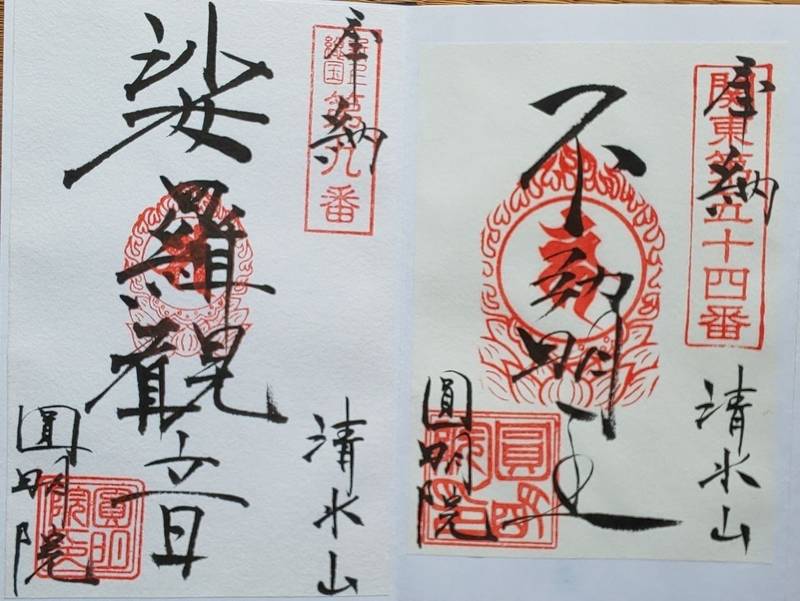 奉納
関東第五十四番
不動明王
清水山
圓明院
奉納
新上総国第九番
娑羅觀音
清水山
圓明院